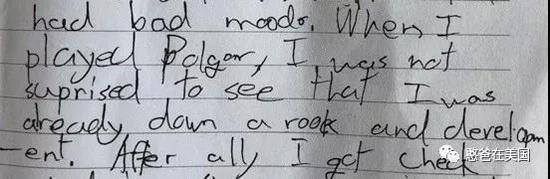 had bad moods. When I
played Polgar, I was not
suprised to see that I was
already down a rook and developm
-ent. After ally I got check
憨爸在美国